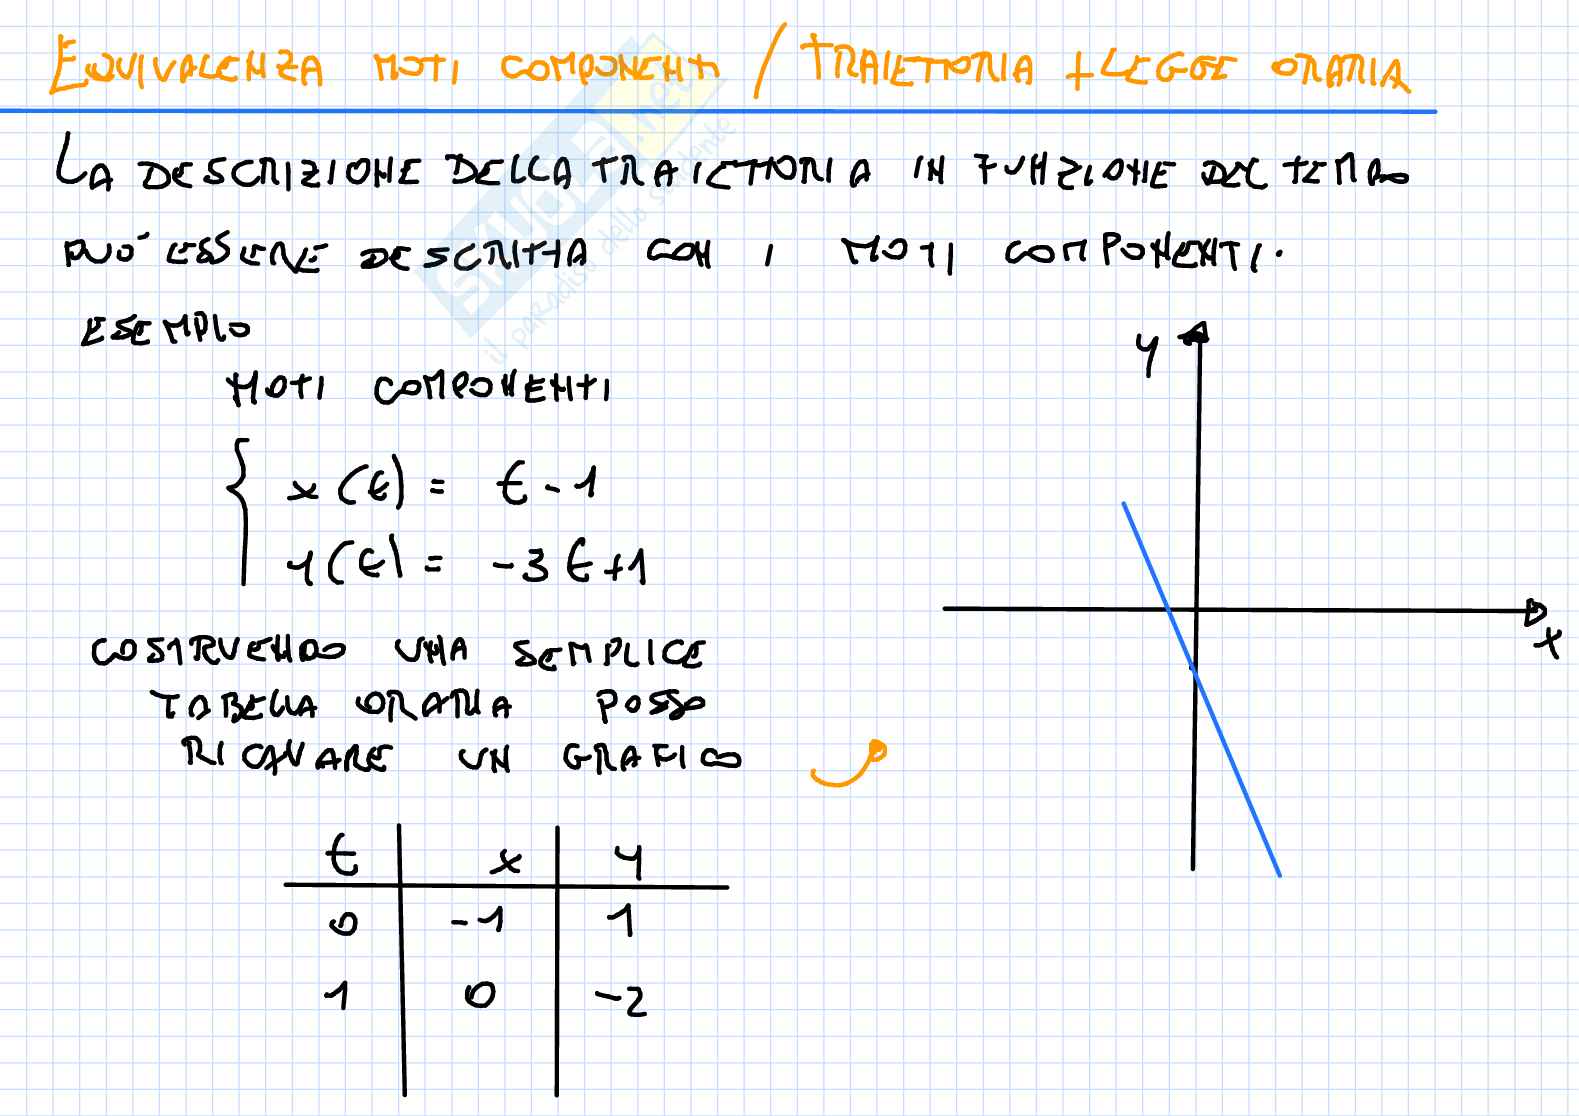 EQUIVALENZA MOTI COMPONENTI / TRAIETTORIA + LEGGE ORARIA
LA DESCRIZIONE DELLA TRAIETTORIA IN FUNZIONE DEL TEMPO
PUÒ ESSERE DESCRITTA CON I MOTI COMPONENTI.
ESEMPIO
MOTI COMPONENTI
x(t) = t - 1
y(t) = -3t+1
COSTRUENDO UNA SEMPLICE
TABELLA ORARIA POSSO
RICAVARE UN GRAFICO
t x y
0 -1 1
1 0 -2
y
x
SKUOLA.net
il paradiso dello studente